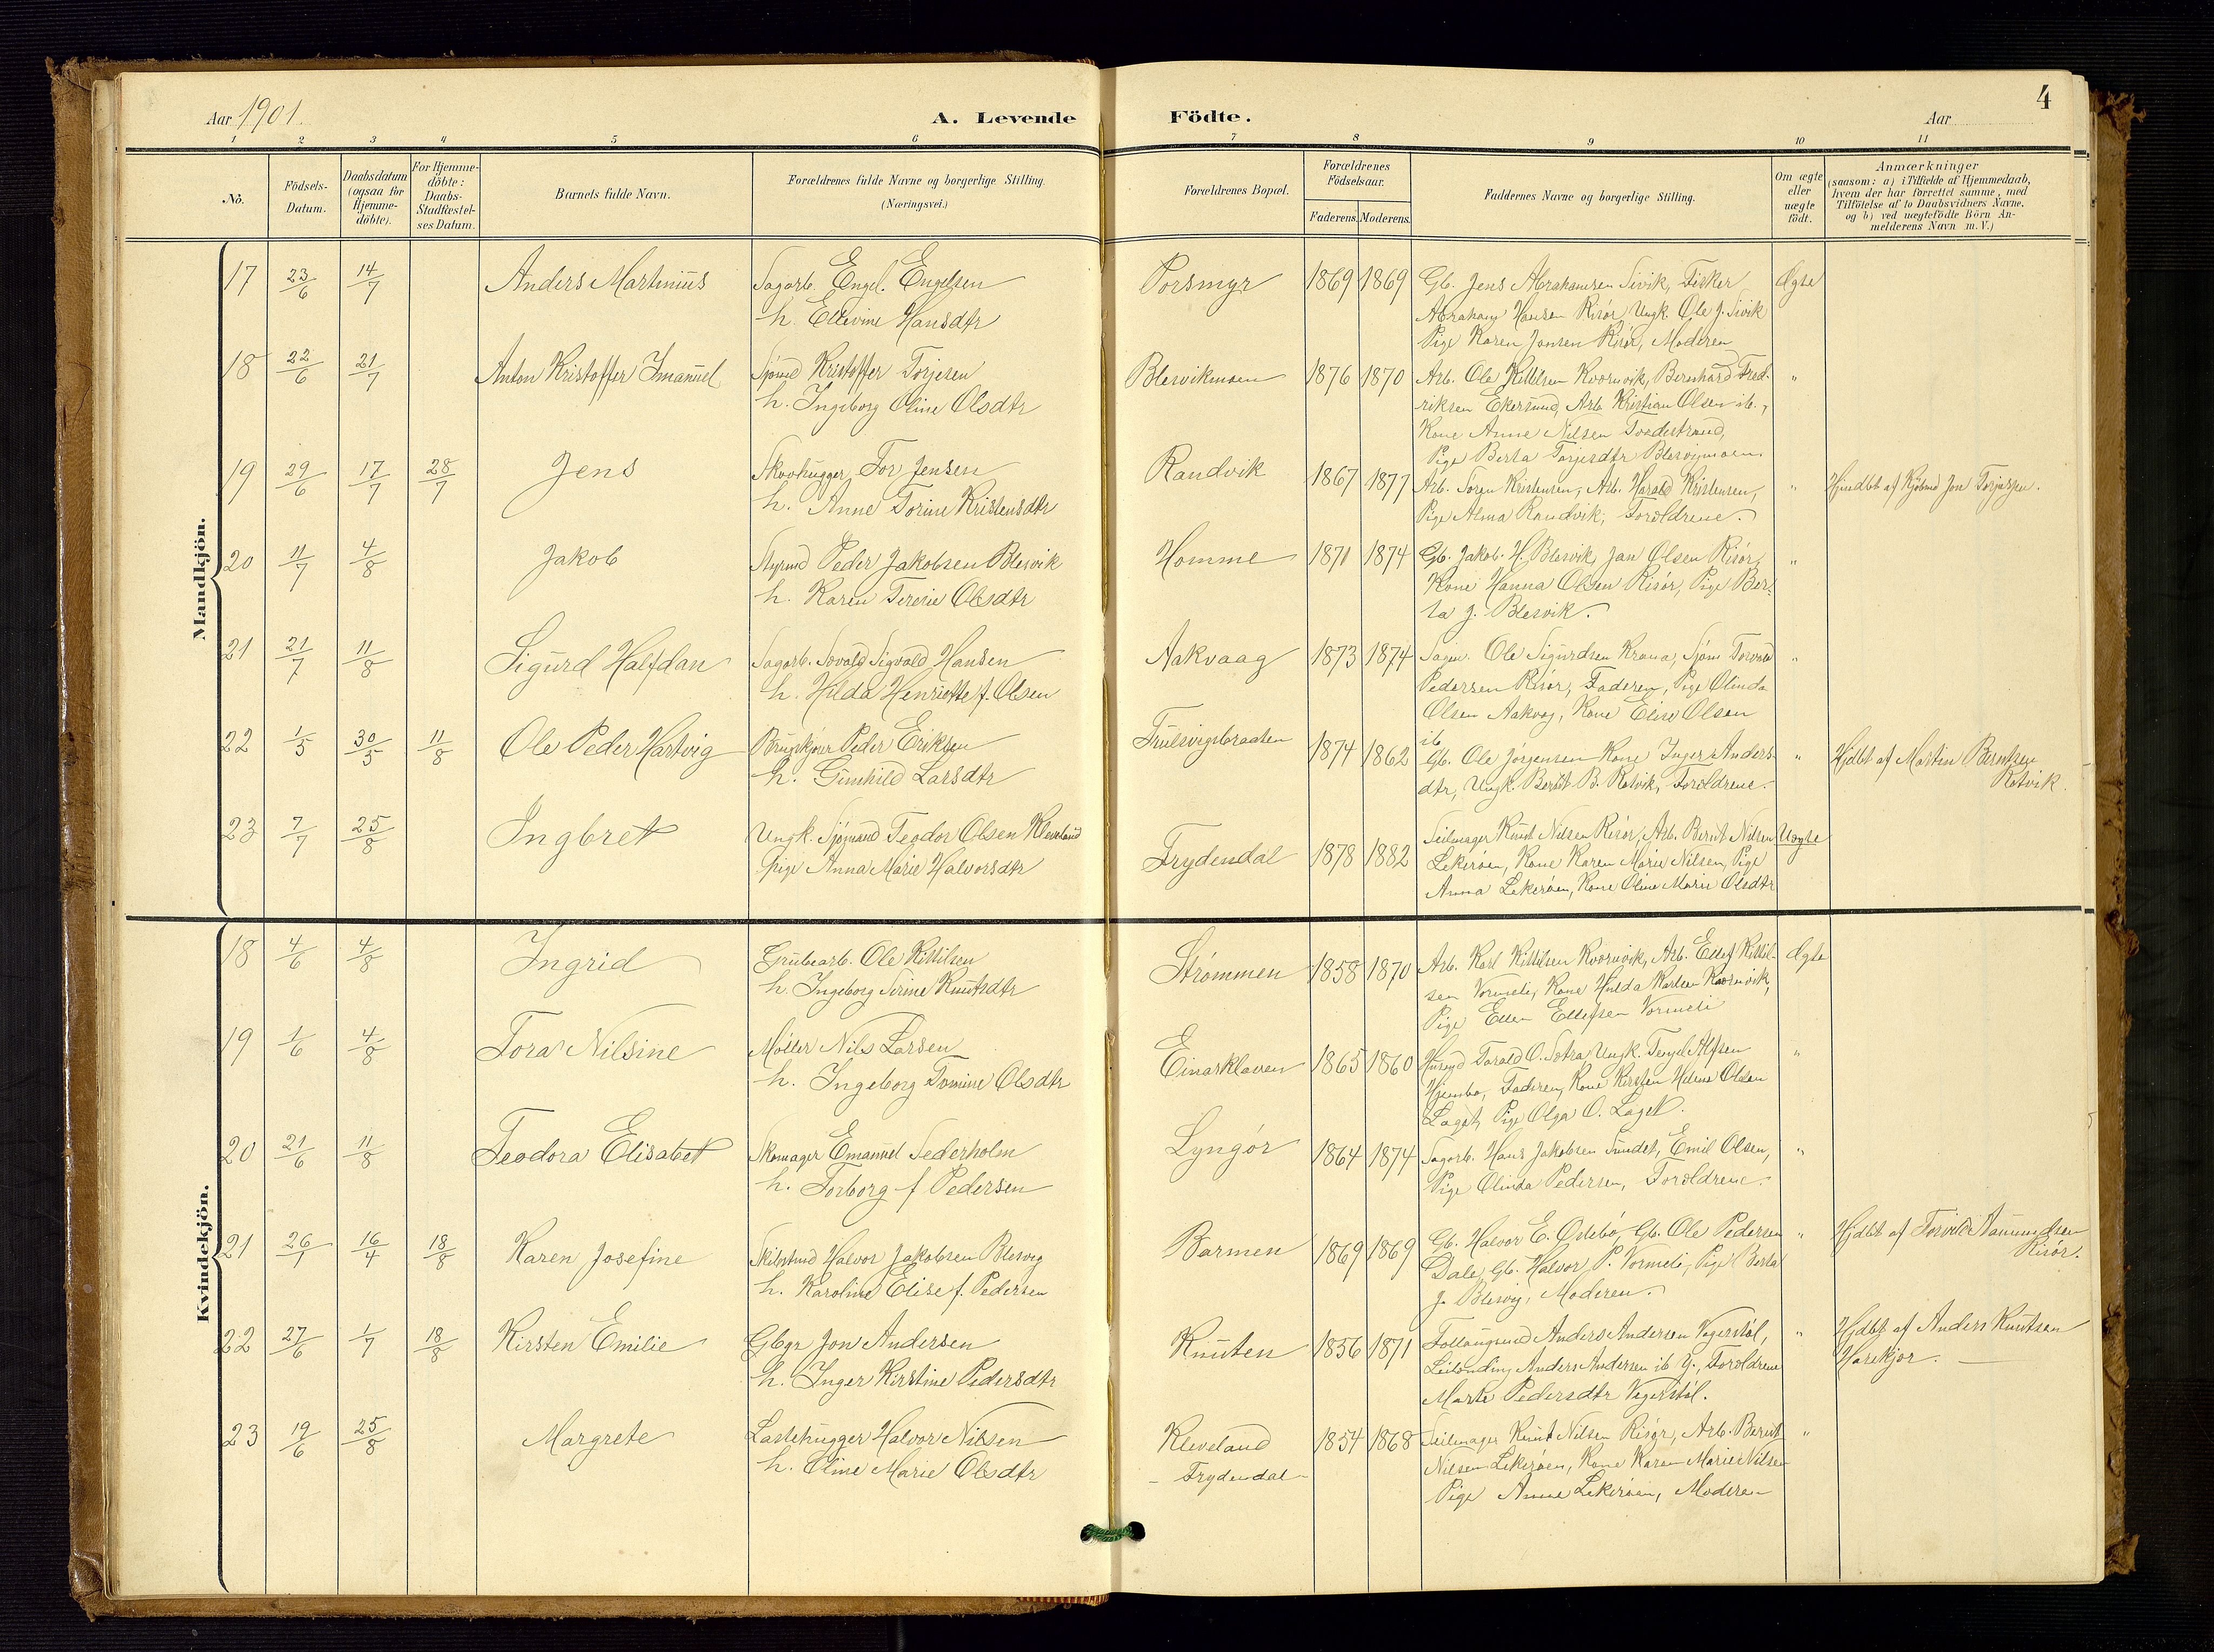 4
Aar 1901. A. Levende Födte. Aar
1 2 3 4 5 6 7 8 9 10 11
No.
Födsels-Datum.
Daabsdatum (ogsaa for Hjemme-döbte).
For Hjemme-döbte: Daabs-Stadfæstel-ses Datum.
Barnets fulde Navn.
Forældrenes fulde Navne og borgerlige Stilling. (Næringsvei.)
Forældrenes Bopæl.
Forældrenes Födselsaar.
Faderens. Moderens.
Faddernes Navne og borgerlige Stilling.
Om ægte eller uægte födt.
Anmærkninger
(saasom: a) i Tilfælde af Hjemmedaab,
hvem der har forrettet samme, med
Tilföielse af to Daabsvidners Navne.
og b) ved uægtefödte Börn An-
melderens Navn m.V.)
Mandkjön.
17 23/6 14/7 Anders Martinius
Sagarb. Engel. Engelsen
h. Ellevine Hansdtr
Porsmyr 1869 1869
Gb. Jens Abrahamsen Sivik, Fisker
Abraham Hansen Risør, Ungk. Ole J. Sivik
Pige Karen Jensen Risør, Moderen
Ægte
18 22/6 21/7 Anton Kristoffer Imanuel
Sjømd Kristoffer Torjesen
h. Ingeborg Oline Olsdtr
Blesvikmoen 1876 1870
Arb. Ole Kittilsen Kvornvik, Bernhard Fred-
riksen Ekersund, Arb. Kristian Olsen ib.,
Kone Anne Nilsen
Pige Berta Torjesdtr Blesvigmoen
"
19 29/6 17/7 28/7 Jens
Skovhugger Tor Jensen
h. Anne Torine Kristensdtr
Randvik 1867 1877
Arb. Soren Kristensen, Arb. Harald Kristensen,
Pige Alma Randvik, Foroldrene.
"
Hjmdbt af Kjøbmd Jon Torjussen.
20 11/7 4/8 Jakob
Styrmd Peder Jakobsen Blesvik
h. Karen Terese Olsdtr
Homme 1871 1874
Gb. Jakob H. Blesvik, Jan Olsen Risør,
Kone Hanna Olsen Risør, Pige Ber-
ta J. Blesvik.
"
21 21/7 11/8 Sigurd Halfdan
Sagarb. Sigvald Hansen
h. Hilda Henriette f. Olsen
Aakvaag 1873 1874
Sagm. Ole Sigurdsen Krana, Sjøm Torvald
Pedersen Risør, Faderen, Pige Olinda
Olsen Aakvag, Kone Elise Olsen
ib
"
22 1/5 30/5 11/8 Ole Peder Hartvig
Peder Eriksen
h. Gunhild Larsdtr
Trulsvigbraaten 1874 1862
Gb. Ole Jörgensen Kone Inger Anders-
dtr, Ungk. Berut B. Rotvik, Foroldrene.
"
Hjdbt af Martin Berntsen
Rotvik.
23 7/7 25/8 Ingbret
Ungk. Sjømand Teodor Olsen Kleveland
Pige Anna Marie Halvorsdtr
Frydendal 1878 1882
Seilmager Knut Nilsen Risør, Arb. Bernt Nilsen
Lekeröen, Kone Karen Marie Nilsen, Pige
Anna Lekeröen, Kone Oline Marie Olsdtr
Uægte
Kvindekjön.
18 4/6 4/8 Ingrid
Grubearb. Ole Kittilsen
h. Ingeborg Serine Knutsdtr
Strømmen 1858 1870
Arb. Karl Kittilsen Kvornvik, Arb. Ellef Kittil-
sen Vormeli, Kone Hulda Karlsen Kvornvik,
Pige Ellen Ellefsen Vormeli
Ægte
19 1/6 4/8 Tora Nilsine
Møller Nils Larsen
h. Ingeborg Tomine Olsdtr
Einarkleven 1865 1860
Husmd Torald O. Sotra Ungk. Tengel Alfsen
Hjembo, Faderen, Kone Kirsten Helene Olsen
Laget, Pige Olga O. Laget.
"
20 21/6 11/8 Teodora Elisabet
Skomager Emanuel Sederholm
h. Torborg f Pedersen
Lyngör 1864 1874
Sagarb. Hans Jakobsen Sundet, Emil Olsen,
Pige Olinda Pedersen, Foroldrene.
"
21 26/1 16/4 18/8 Karen Josefine
Skibstmd Halvor Jakobsen Blesvig
h. Karoline Elise f. Pedersen
Barmen 1869 1869
Gb. Halvor E. Östebö, Gb. Ole Pedersen
Dale, Gb. Halvor P. Vormeli, Pige Berta
J. Blesvig, Moderen.
"
Hjdbt af Torvild Aanundsen
Risör.
22 27/6 1/7 18/8 Kirsten Emilie
Gbgr Jon Andersen
h. Inger Kirstine Pedersdtr
Knuten 1856 1871
Anders Andersen Vegerstøl,
Anders Andersen ib Y., Foroldrene
Marte Pedersdtr Vegerstöl.
"
Hjdbt af Anders Knutsen
Harekjor.
23 19/6 25/8 Margrete
Lastehugger Halvor Nilsen
h. Oline Marie Olsdtr
Kleveland
- Frydendal -
1854 1868
Seilmager Knut Nilsen Risør, Arb. Bernt
Nilsen Lekeröen, Kone Karen Marie Nilsen
Pige Anne Lekeröen, Moderen
"